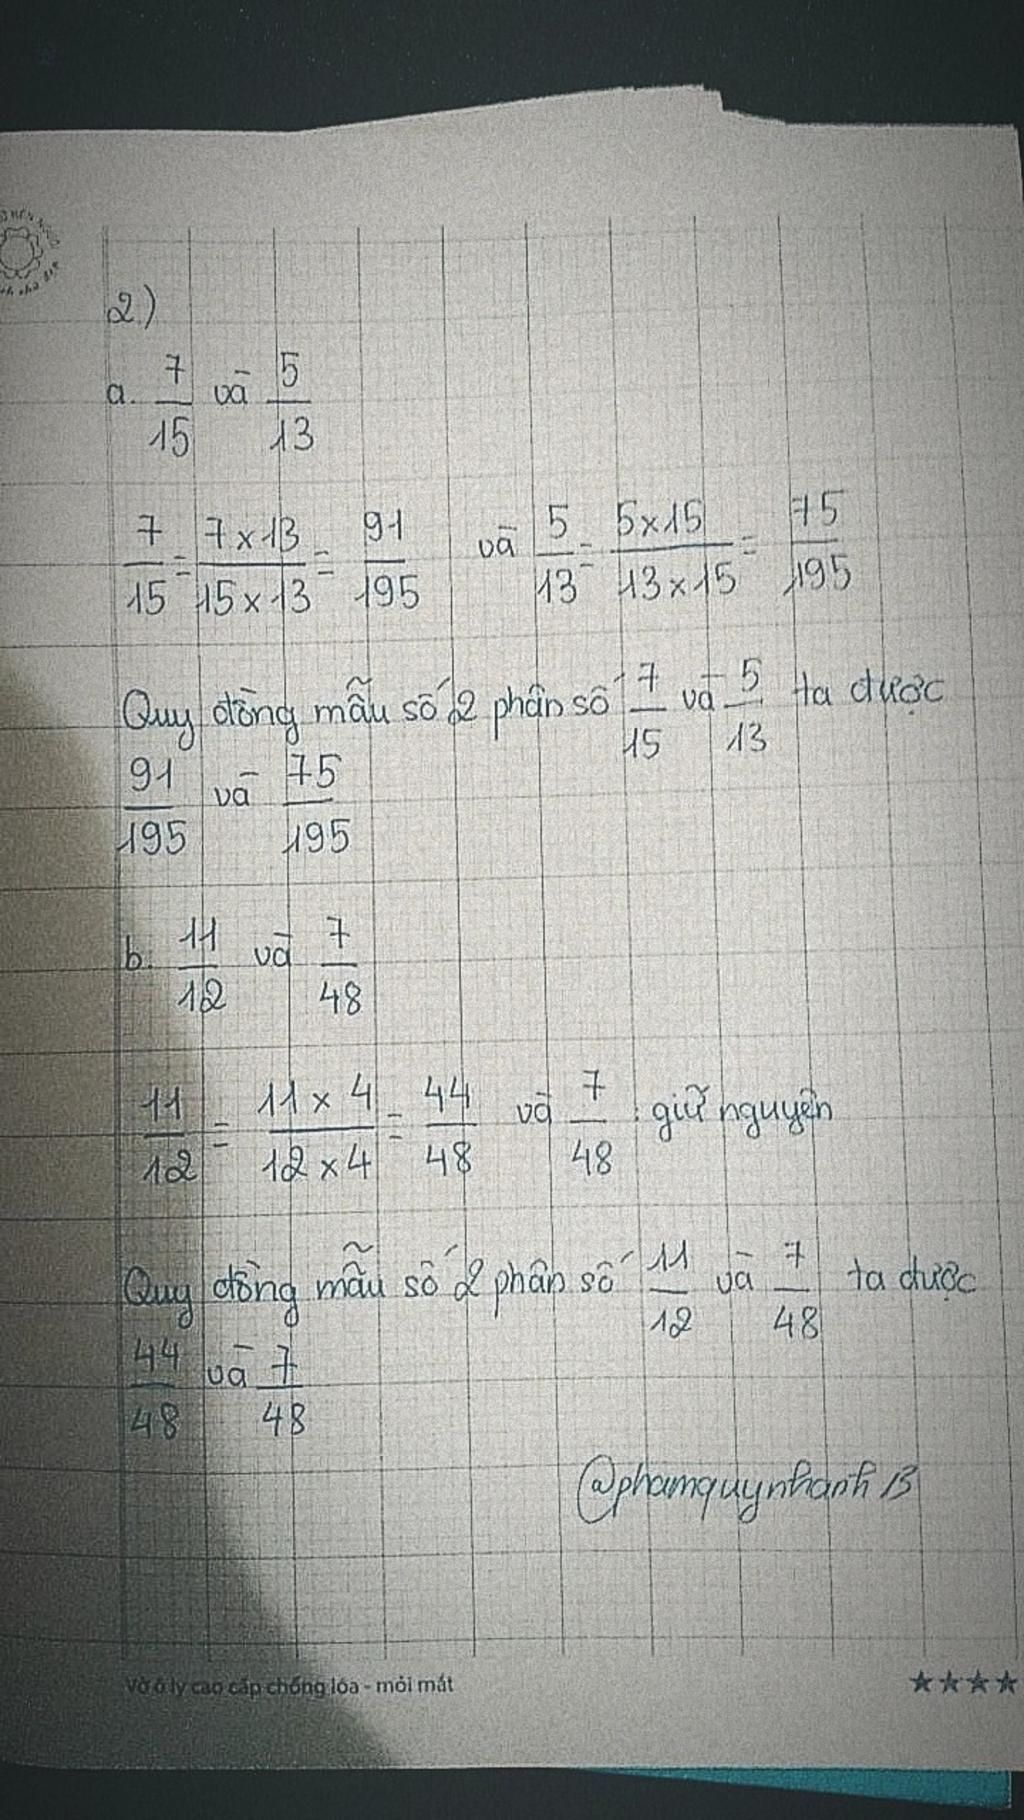 2)
a. 7/15 và 5/13
7/15 = 7 x 13/15 x 13 = 91/195 và 5/13 = 5 x 15/13 x 15 = 75/195
Quy đồng mẫu số 2 phân số 7/15 và 5/13 ta được
91/195 và 75/195
b. 11/12 và 7/48
11/12 = 11 x 4/12 x 4 = 44/48 và 7/48 : giữ nguyên
Quy đồng mẫu số 2 phân số 11/12 và 7/48 ta được
44/48 và 7/48
@phamquynhanhB
Vở ô ly cao cấp chống lóa - mỏi mắt